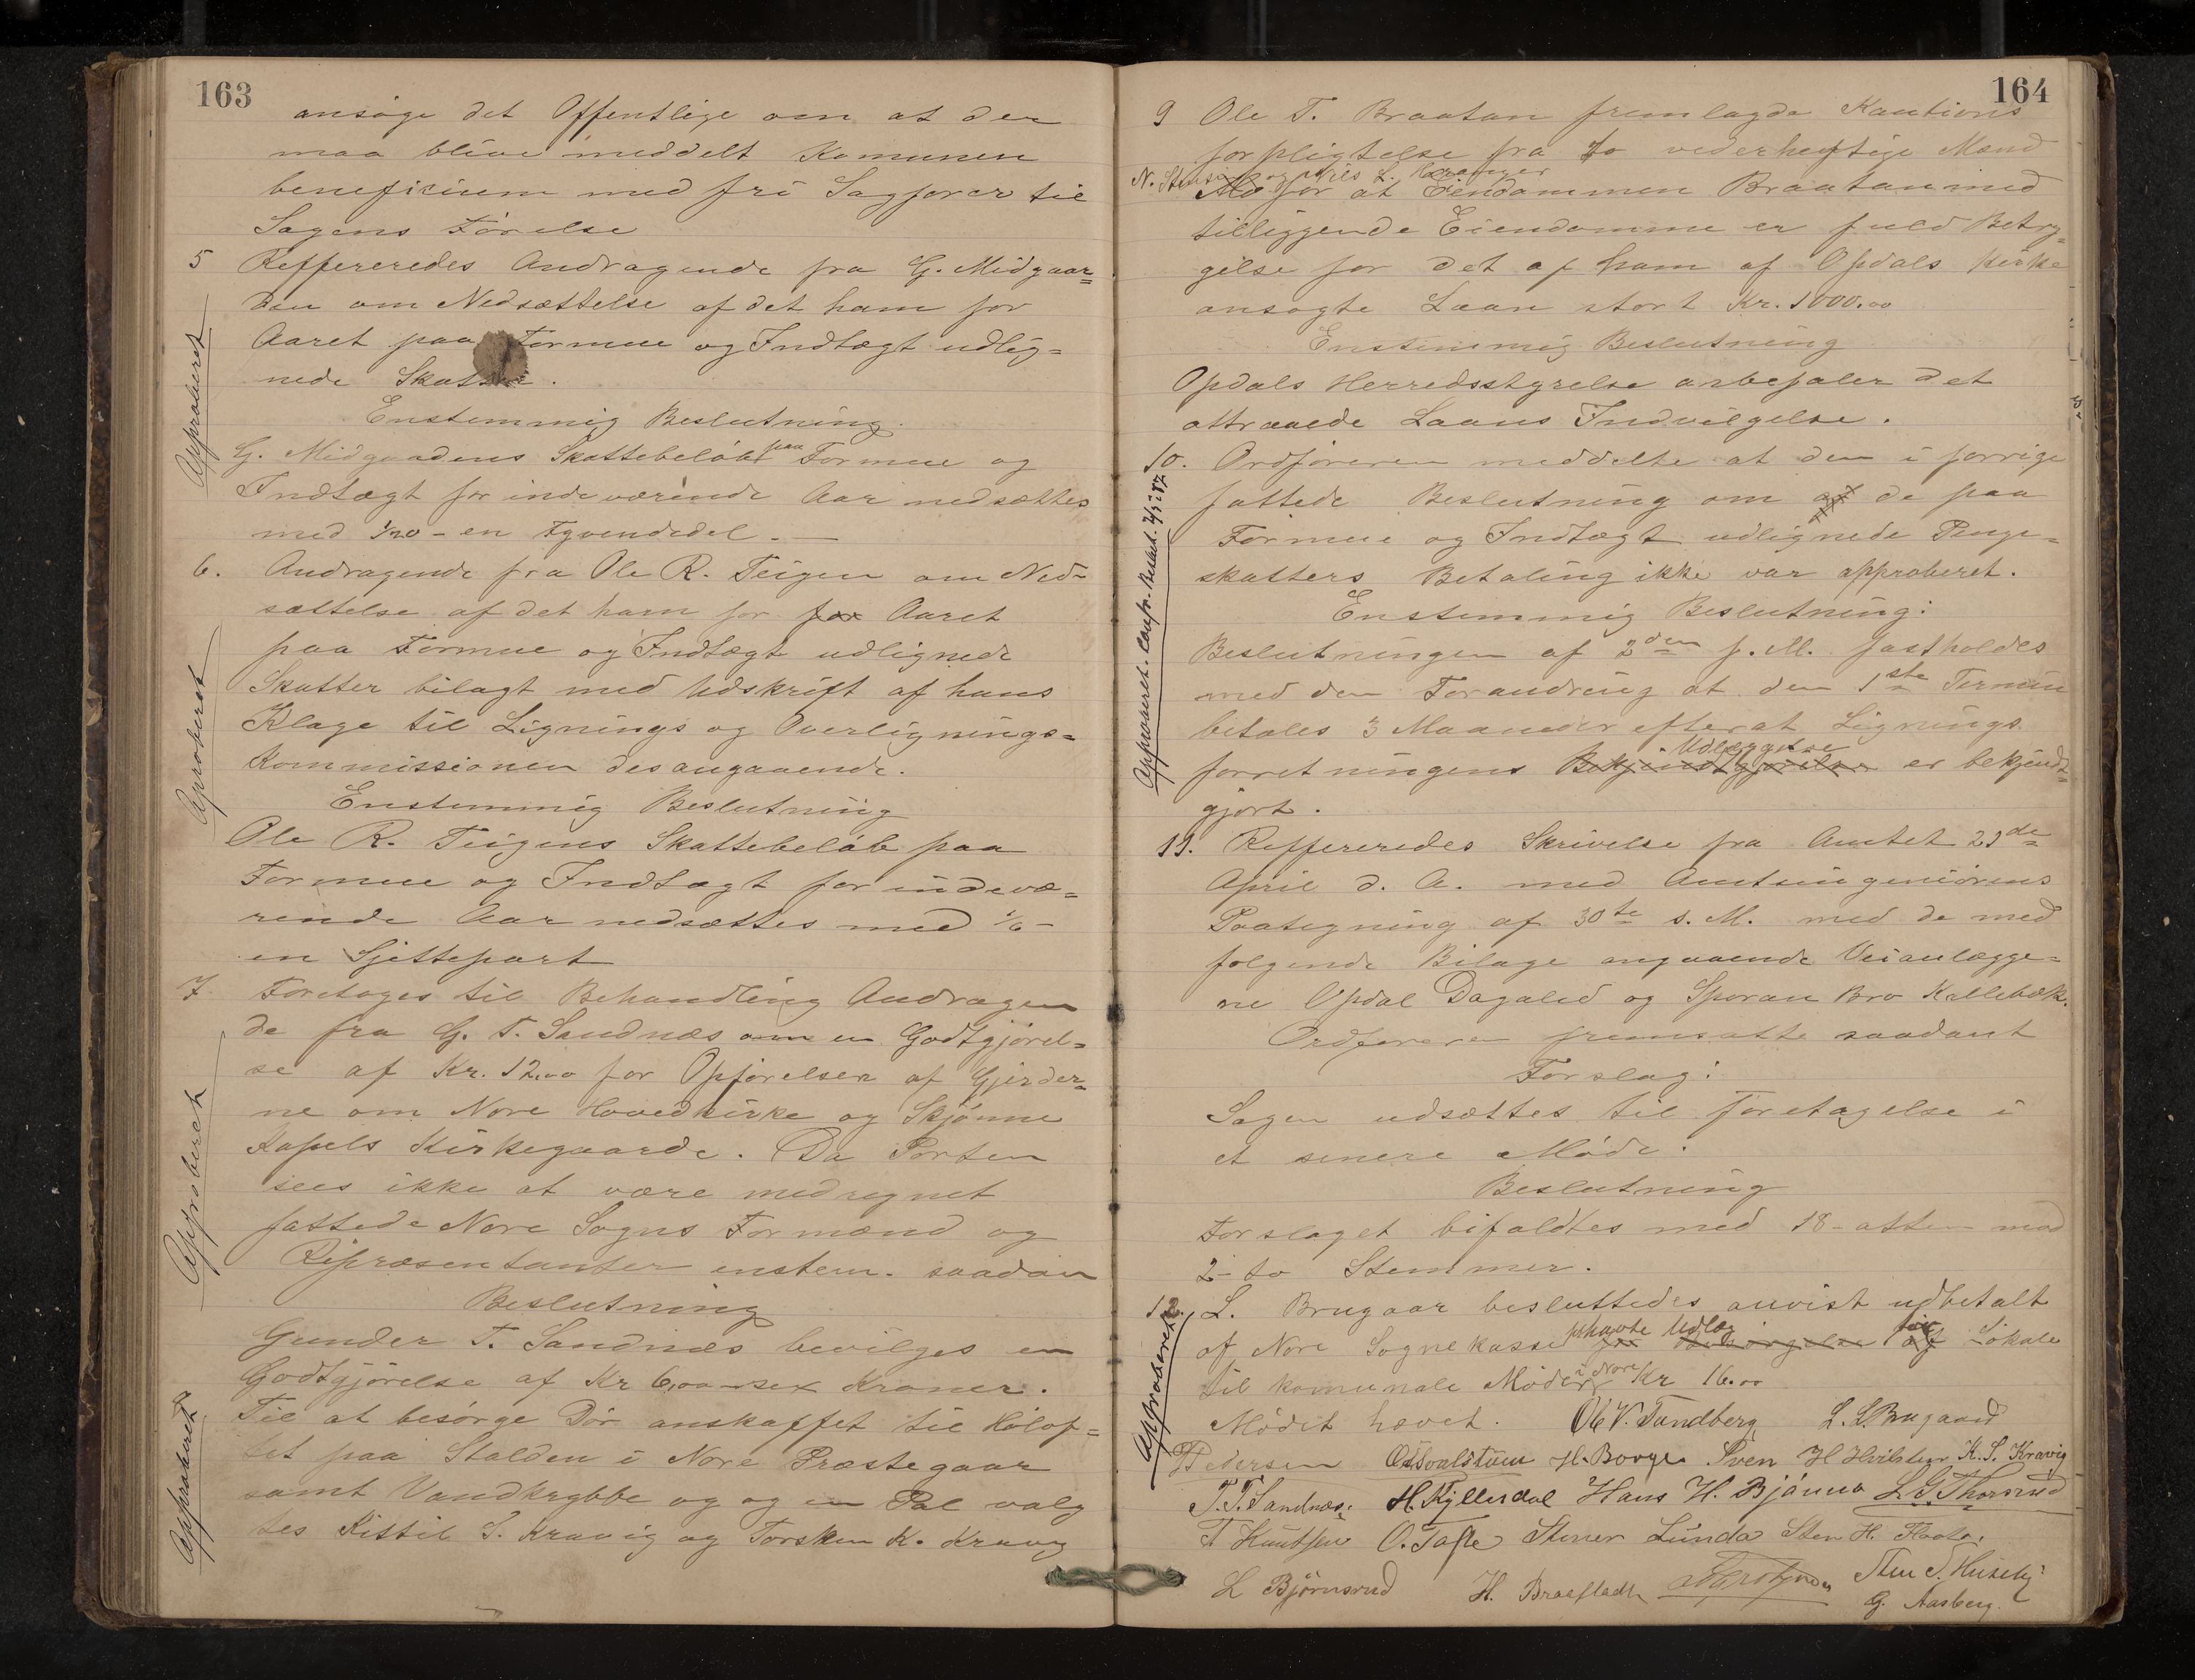 163
ansøge det Offentlige om at der
maa blive meddelt Komunen
beneficium med fri Sagfører til
Sagens Førelse
5 Reffereredes Andragende fra G. Midgaar=
den om Nedsættelse af det ham for
Aaret paa Formue og Indtægt udlig=
nede Skatter.
Enstemmig Beslutning.
G. Midgaadens Skattebeløb paa Formue og
Indtægt for indeværende Aar nedsættes
med 1/20 - en Tyvendedel. —
Approberet
6. Andragende fra Ole R. Teigen om Ned-
sættelse af det ham for for Aaret
paa Formue og Indtægt udlignede
Skatter bilagt med Udskrift af hans
Klage til Lignings og Overlignings=
kommissionen desangaaende.
Enstemmig Beslutning
Ole R. Teigens Skattebeløb paa
Formue og Indtægt for indevæ=
rende Aar nedsættes med 1/6 -
en Sjettepart
Aproberet
7 Foretoges til Behandling Andragen
de fra G. T. Sandnæs om en Godtgjørel=
se af Kr. 12,00 for Opførelsen af Gjerder=
ne om Nore Hovedkirke og Skjønne
Kapels Kirkegaarde. Da Porten
sees ikke at være medregnet
fattede Nore Sogns Formænd og
Repræsentanter enstem. saadan
Beslutning
Gunder T. Sandnæs bevilges en
Godtgjørelse af Kr 6,00 - sex Kroner.
Approberet
Til at besørge Dør anskaffet til Høløf=
tet paa Stalden i Nore Præstegaar
samt Vandkrybbe og og en Pal valg
tes Kittil S. Kravig og Torsken K. Kravg
Approberet
164
9 Ole T. Braatan fremlagde Kautions
forpligtelse fra to vederheftige Mænd
N. Stensen og Nils L.
for at Eiendommen Braatan med
tilliggende Eiendomme er fuld Betry=
gelse for det af ham af Opdals Kirke
ansøgte Laan stort Kr. 1000.00
Enstemmig Beslutning
Opdals Herredsstyrelse anbefaler det
attraaede Laans Indvilgelse.
10. Ordføreren meddelte at den i forrige
fattede Beslutning om af de paa
Formue og Indtægt udlignede Penge=
skatters Betaling ikke var approberet.
Enstemmig Beslutning:
Beslutningen af 2den f. M. fastholdes
med den Forandring at den 1ste Termin
betales 3 Maaneder efter at Lignings
forretningens Bekjendtgjørelse Udlæggelse er bekjendt=
gjort.
Approberet. Confr. Beslut.
11. Reffereredes Skrivelse fra Amtet 23de
April d. A. med Amtsingeniørens
Paategning af 30te s. M. med de med
følgende Bilage angaaende Veianlægge=
ne Opdal Dagalid og Sporan Bro Kallebæk.
Ordføreren fremsatte saadant
Forslag:
Sagen udsættes til Foretagelse i
et senere Møde.
Beslutning
Forslaget bifaldtes med 18 - atten mod
2 - to Stemmer.
12. L. Brugaar besluttedes anvist udbetalt
af Nore Sognekasse for havte Udlæg Besørgelse af Lokale
til komunale Møder i Nore Kr 16.00
Approberet
Mødet hævet. Ole V. Tandberg L. L. Brugaard
Pedersen H. Borge Sven H K. S. Kravig
T. T. Sandnæs. H. Kyllesdal Hans H. Bjønno L. G. Thorsrud
T Knutsen O. Tofte Stener Lunda Sten H. Flaata.
L Bjørnsrud H. Sten T. Huseby
G. Aasberg.